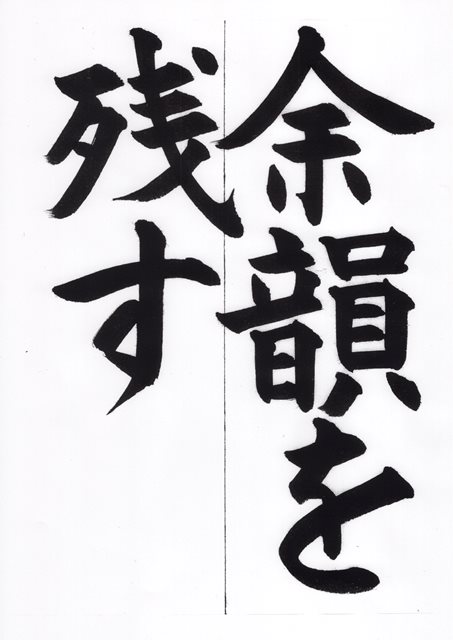 余韻を
残す